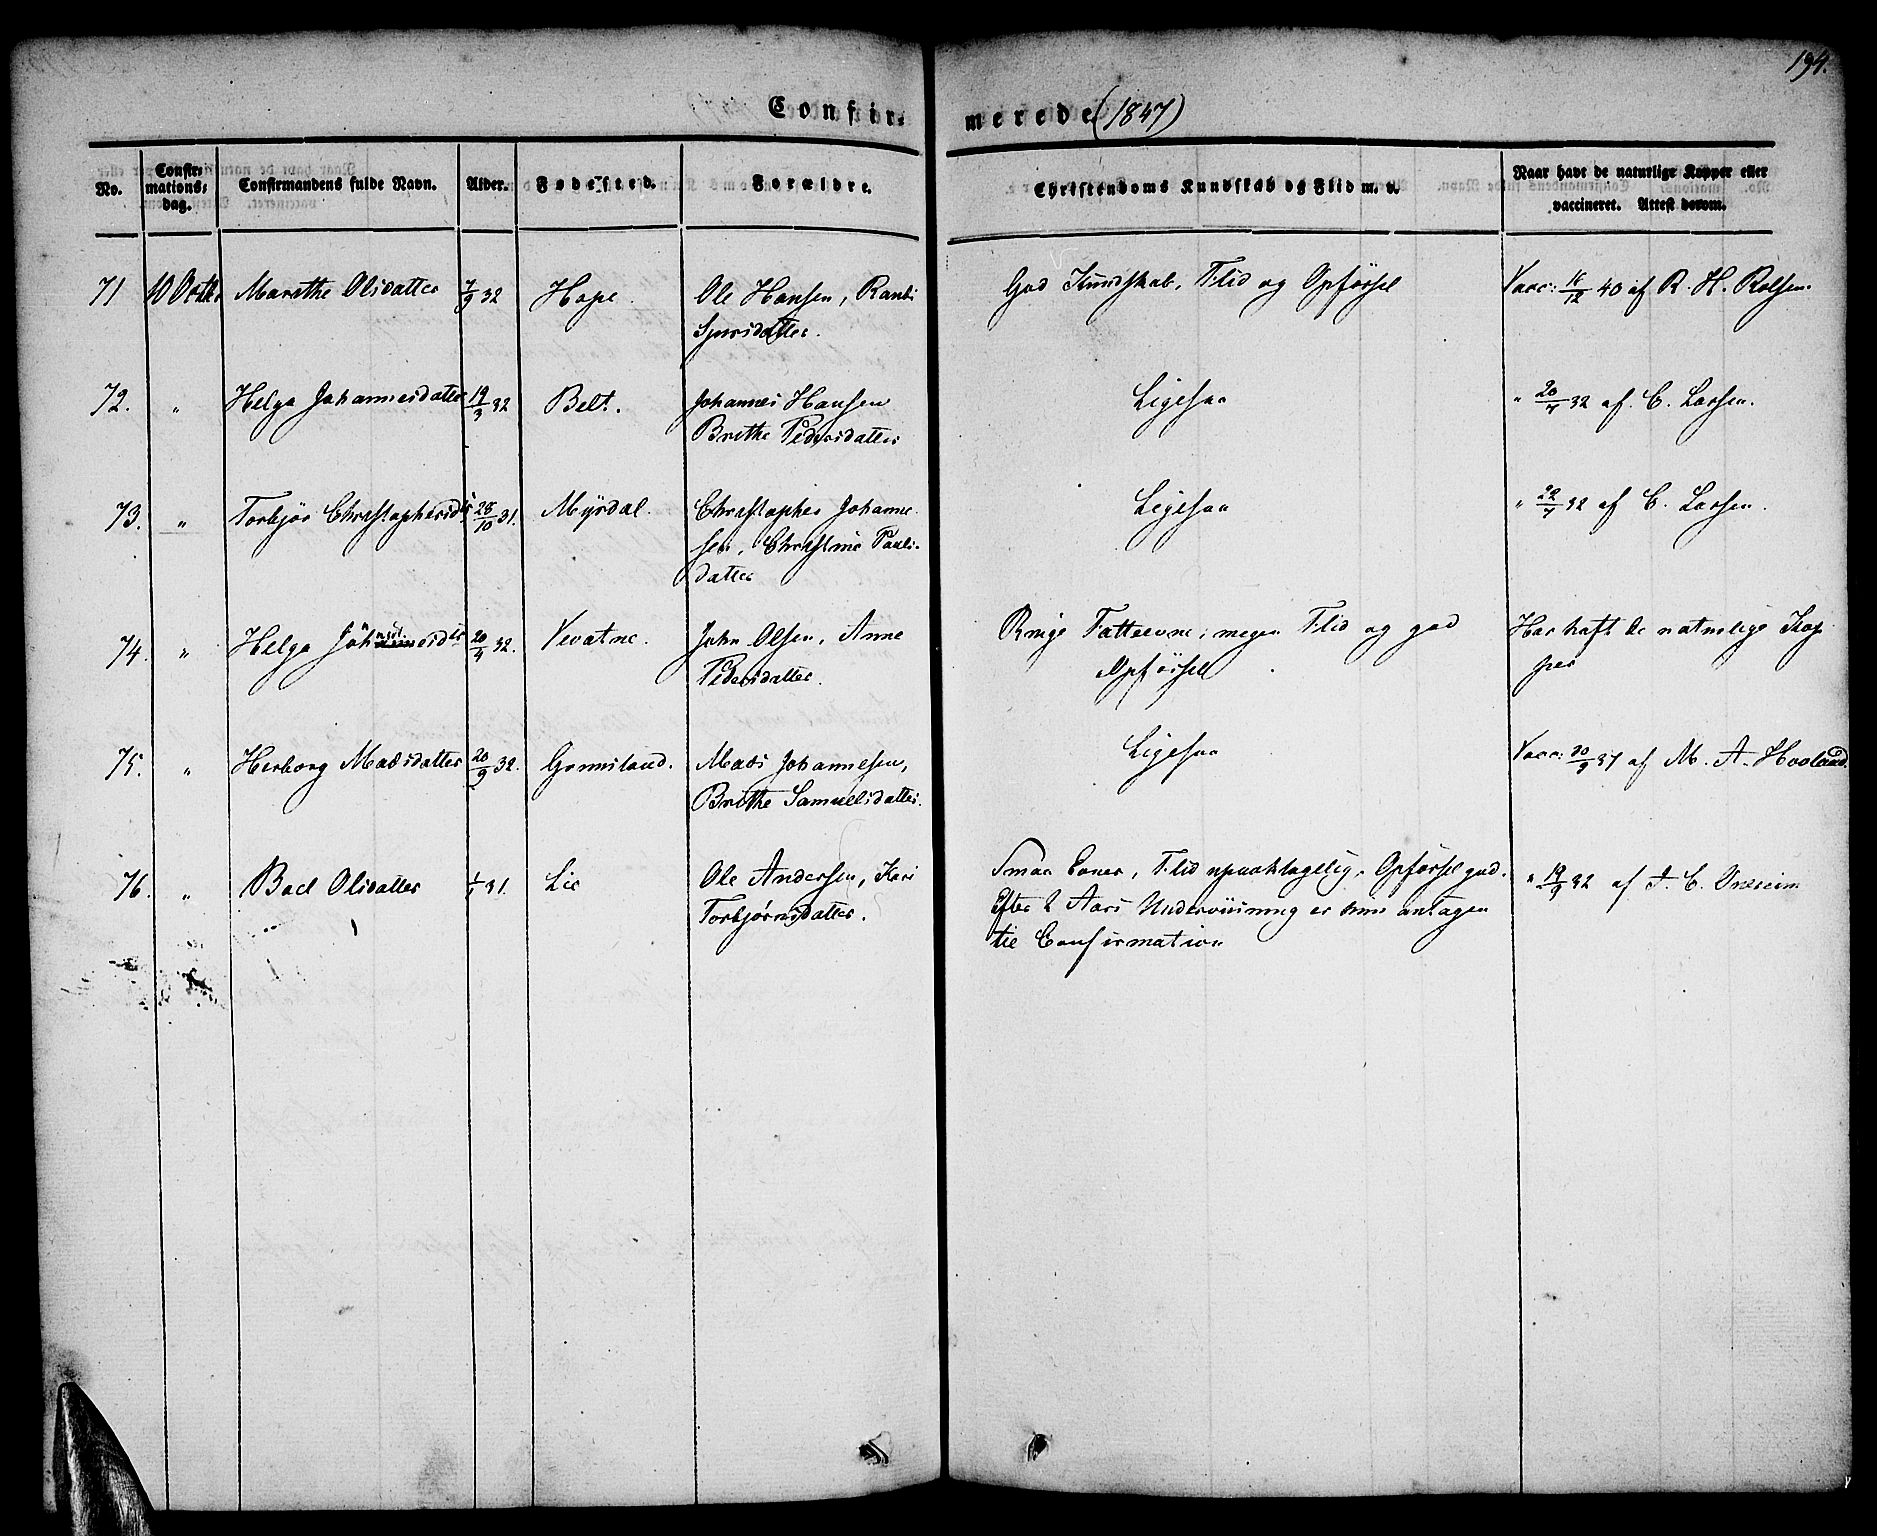 194.
Confir-
merede (1847)
No.
Confir-
mations-
dag.
Confirmandens fulde Navn.
Alder.
Fødested.
Forældre.
Christendoms Kundskab og Flid m. v.
Naar havt de naturlige Kopper eller
vaccineret. Attest derom.
71 10 Octbr Marethe Olsdatter 7/9 32 Hope. Ole Hansen, Randi God Kundskab, Flid og Opførsel Vacc: 16/12 40 af R. H. Rolfsen.
Sjursdatter.
72. " Helga Johannesdatter 19/3 32 Belt. Johannes Hansen Ligesaa " 20/7 32 af C. Larsen.
Brithe Pedersdatter
73. " Torbjør Christophersdtr 28/10 31. Myrdal. Christopher Johanne- Ligesaa " 22/7 32 af C. Larsen.
sen, Christine Pauls-
datter
74. " Helga 20/4 32. Vevatne. John Olsen, Anne Ringe Fatteevne, megen Flid og god Har havt de naturlige Kop-
Pedersdatter. Opførsel per
75. " Herborg Madsdatter 20/9 32. Gonnsland. Mads Johannesen, Ligesaa Vacc: 30/9 37 af M. A. Hovland.
Brithe Samuelsdatter.
76. " Boel Olsdatter 1/1 31. Lie Ole Andersen, Kari Smaa Evner, Flid upaaklagelig, Opførsel god. " 19/9 32 af
Torbjørnsdatter. Efter 2 Aars Underviisning er hun antagen
til Confirmation